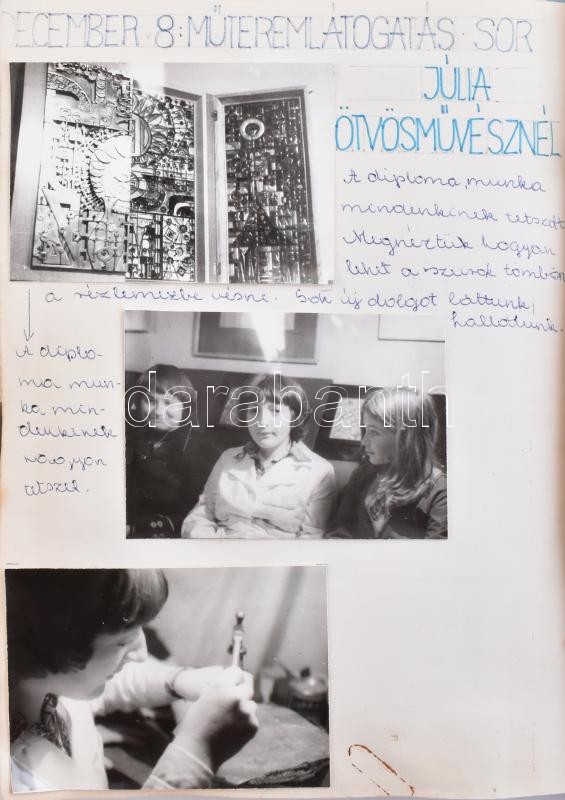 DECEMBER 8: MŰTEREMLÁTOGATÁS SOR
JÚLIA
ÖTVÖSMŰVÉSZNÉL
A diploma munka
mindenkinek tetszett
Megnéztük hogyan
lehet a szurok tömbön
a rézlemezbe vésni. Sok új dolgot láttunk,
hallottunk.
A diplo-
ma mun-
ka min-
denkinek
nagyon
tetszet.
darabanth